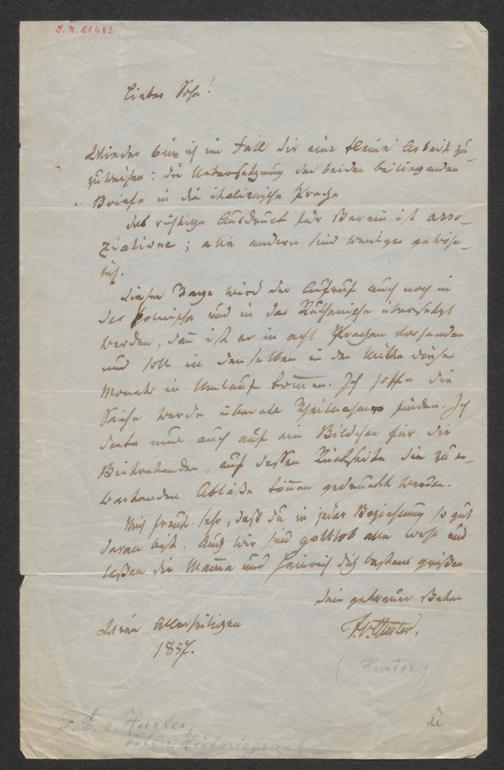 I. N. 81.442
Lieber Sohn!
Wieder bin ich im Fall dir eine kleine Arbeit zu-
zuweisen: die Uebersetzung der beiden beiliegenden
Briefe in die italienische Sprache
der richtige Ausdruck für Verein ist asso-
ziatione; alle andern sind weniger gewöhn-
lich.
Dieser Tage wird der Aufruf auch noch in
das Polnische und in das Ruthenische übersetzt
werden, dann ist er in acht Sprachen vorhanden
und soll in denselben in der Mitte dieses
Monats in Umlauf kommen. Ich hoffe die
Sache werde überall Theilnahme finden. Ich
denke nun auch auf ein Bildchen für die
Beitretenden, auf dessen Rückseite die zu er-
wartenden Ablässe können gedruckt werden.
Mich freut sehr, daß du in jeder Beziehung so gut
daran bist. Auch wir sind gottlob alle wohl und
lassen die Mamma und Heinrich dich bestens grüßen
Dein getreuer Vater
Wien Allerheiligen
F. v. Hurter.
1857.
(Hurter)
F. E. v. Hurter
österr. Historiograph